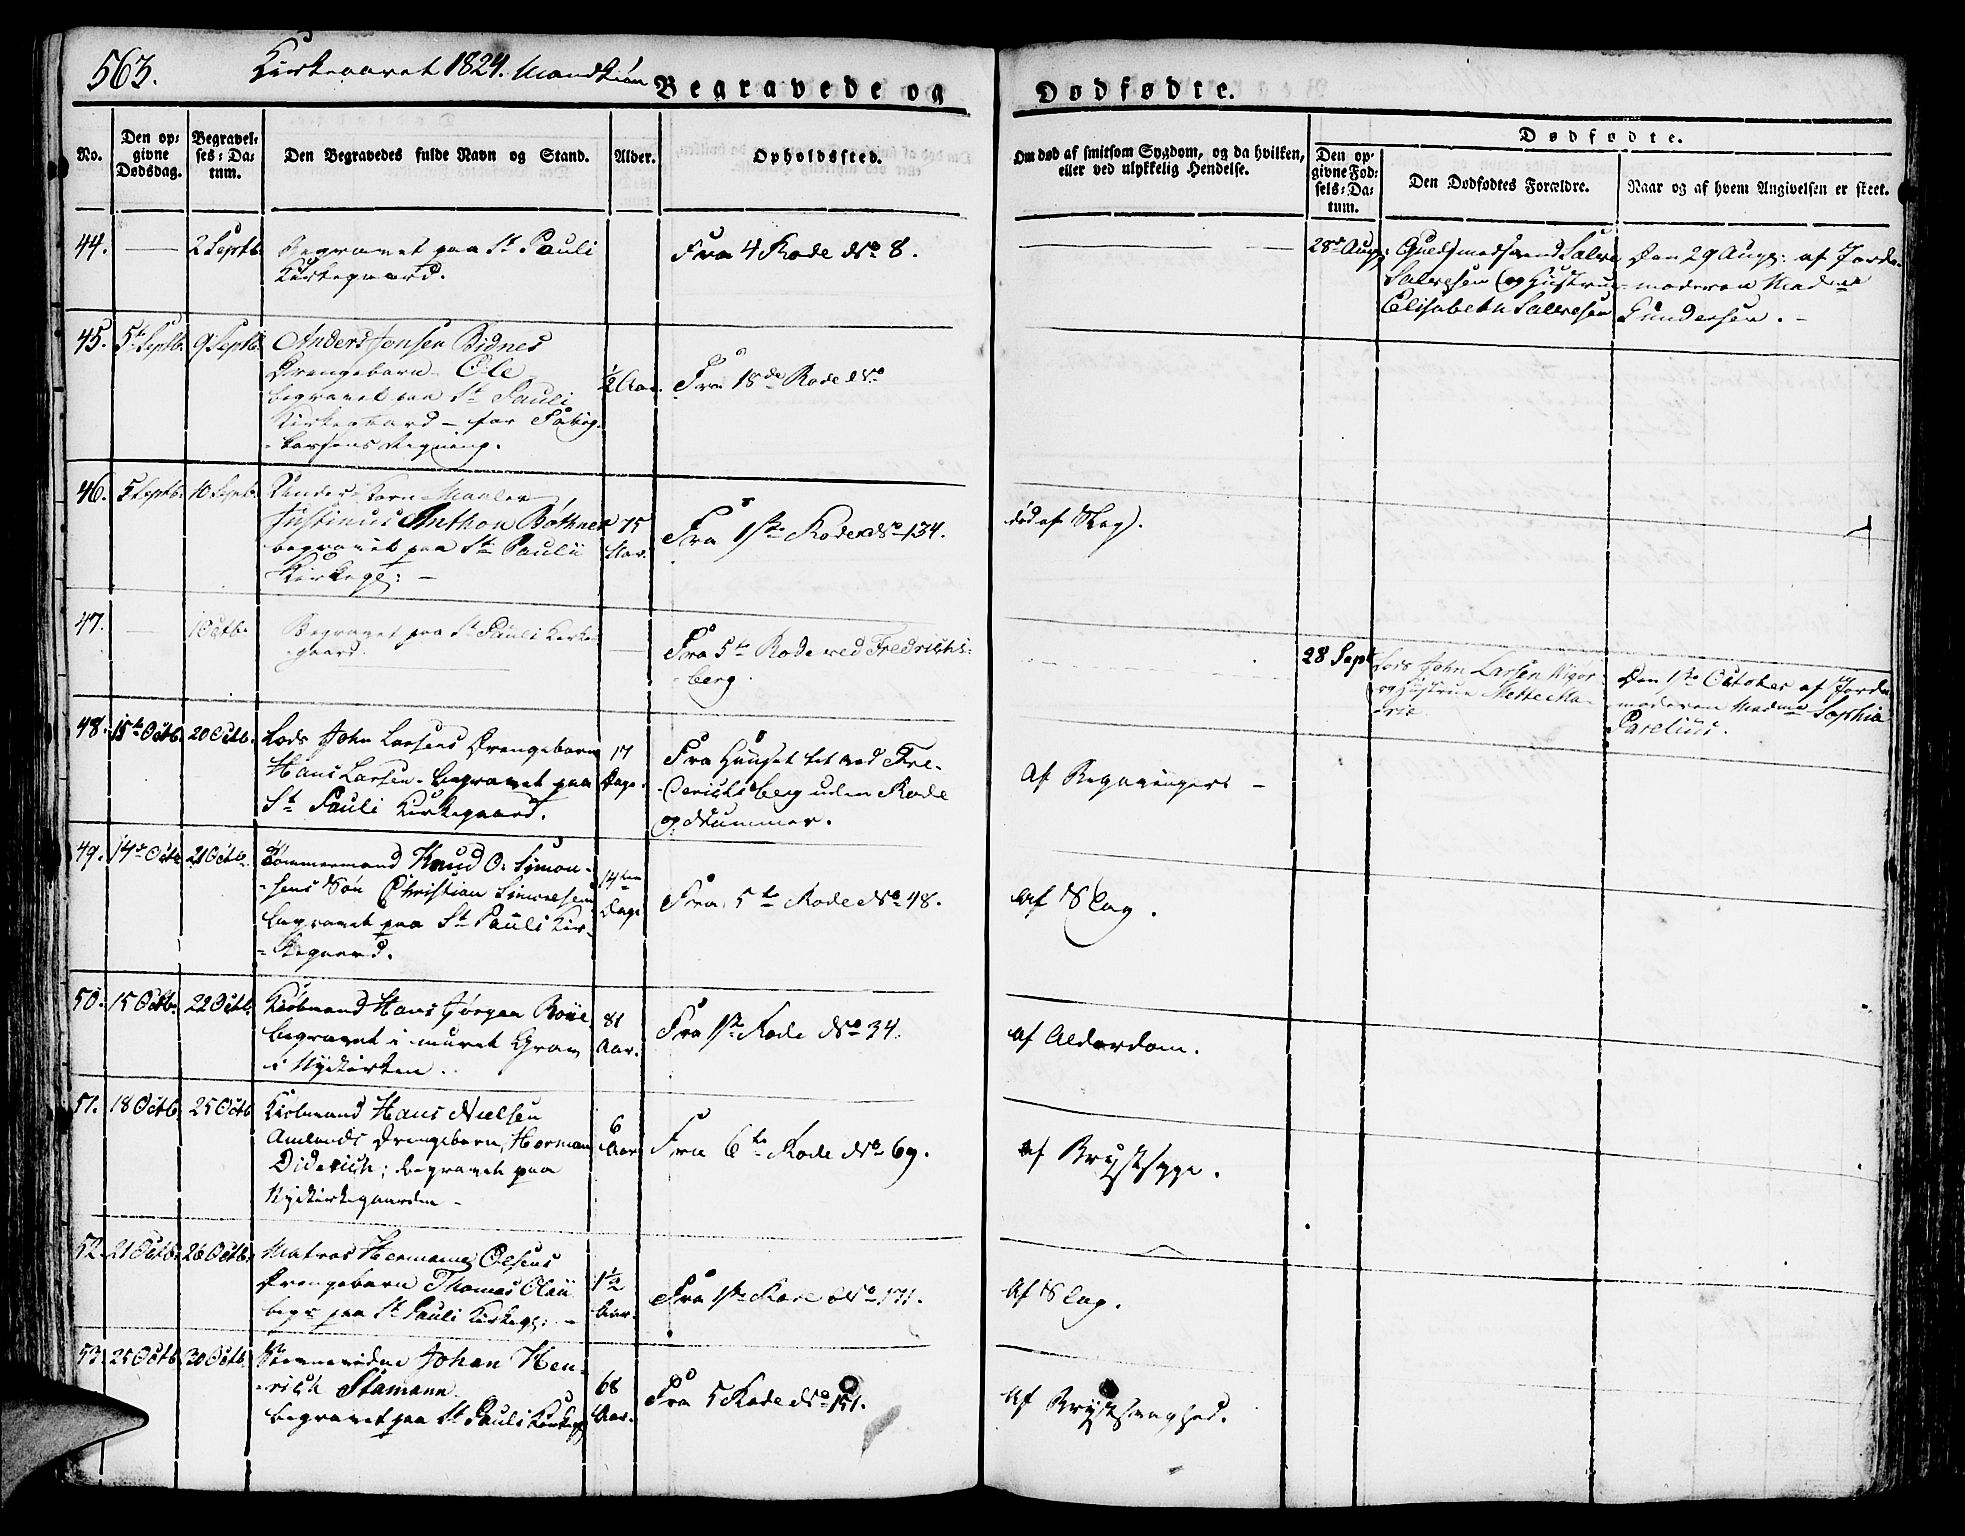 563.
Kirkeaaret 1824. Mandkiøn
Begravede og Dødfødte.
No.
Den opgivne Dødsdag.
Begravelses-Datum.
Den Begravedes fulde Navn og Stand.
Alder.
Opholdssted.
Om død af smitsom Sygdom, og da hvilken, eller ved ulykkelig Hendelse.
Dødfødte.
Den opgivne Fødsels-Datum.
Den Dødfødtes Forældre.
Naar og af hvem Angivelsen er skeet.
44. — 2 Septb.
Begravet paa St Pauli
Kirkegaard.
Fra 4 Rode No 8.
28de Aug:
Guldsmedsvend Salve
Salvesen og Hustrue
Elisabeth Salvesen
Den 29 Aug: af Jorde-
moderen Madme
Gundersen. —
45. 5te Septb. 9 Septb.
Anders Jensen Bidnes
Drengebarn - Ole -
begravet paa St Pauli
Kirkegaard — for
Larsens Regning.
1/2 Aar.
Fra 18de Rode No
46. 5 Septb. 10 Septb.
Justinus Anthon Bøthner
begravet paa St Pauli
Kirkeg: —
75
Aar.
Fra 1ste Rode No 134.
død af Slag.
47. — 1 Octb.
Begravet paa St Pauli Kirke-
gaard.
Fra 5te Rode ved Fredrichs-
berg.
28 Sept
Lods John Larsen
og Hustrue Mette Ma-
ria.
Den 1ste October af Jorde
moderen Madme Sophia
Parelius.
48. 15te Octb. 20 Octb.
Lods John Larsens Drengebarn
Hans Larsen - begravet paa
St Pauli Kirkegaard.
17
Dage.
Fra Huuset tet ved Fre-
derichsberg uden Rode
og Nummer.
49. 14de Octb 21 Octb.
Tømmermand Knud O: Symon-
sens Søn Christian Simonsen
begravet paa St Pauli Kir-
kegaard.
14ten
Dage
Fra 5te Rode No 48.
Af Slag.
50. 15 Octb. 22 Octb.
Kiøbmand Hans Jørgen
begravet i muret Grav
i Nyekirken.
81
Aar.
Fra 1ste Rode No 34.
af Alderdom.
51. 18 Octb. 25 Octb
Kiøbmand Hans Nielsen
Amlands Drengebarn, Herman
Diderich; begravet paa
Nyekirkegaarden —
6
Aar
Fra 6te Rode No 69.
af Brystsyge.
52. 21 Octb. 26 Octb.
Matros Hermann Olsens
Drengebarn Thomas Olai
begr paa St Pauli Kirkeg: —
1 1/2
Aar.
Fra 1ste Rode No 171.
Af Slag.
53. 25 Octb. 30 Octb.
Johan Hen-
rich Stamann
begravet paa St Pauli Kirkeg
68
Aar.
Fra 5 Rode No 151.
Af Brystsvaghed.